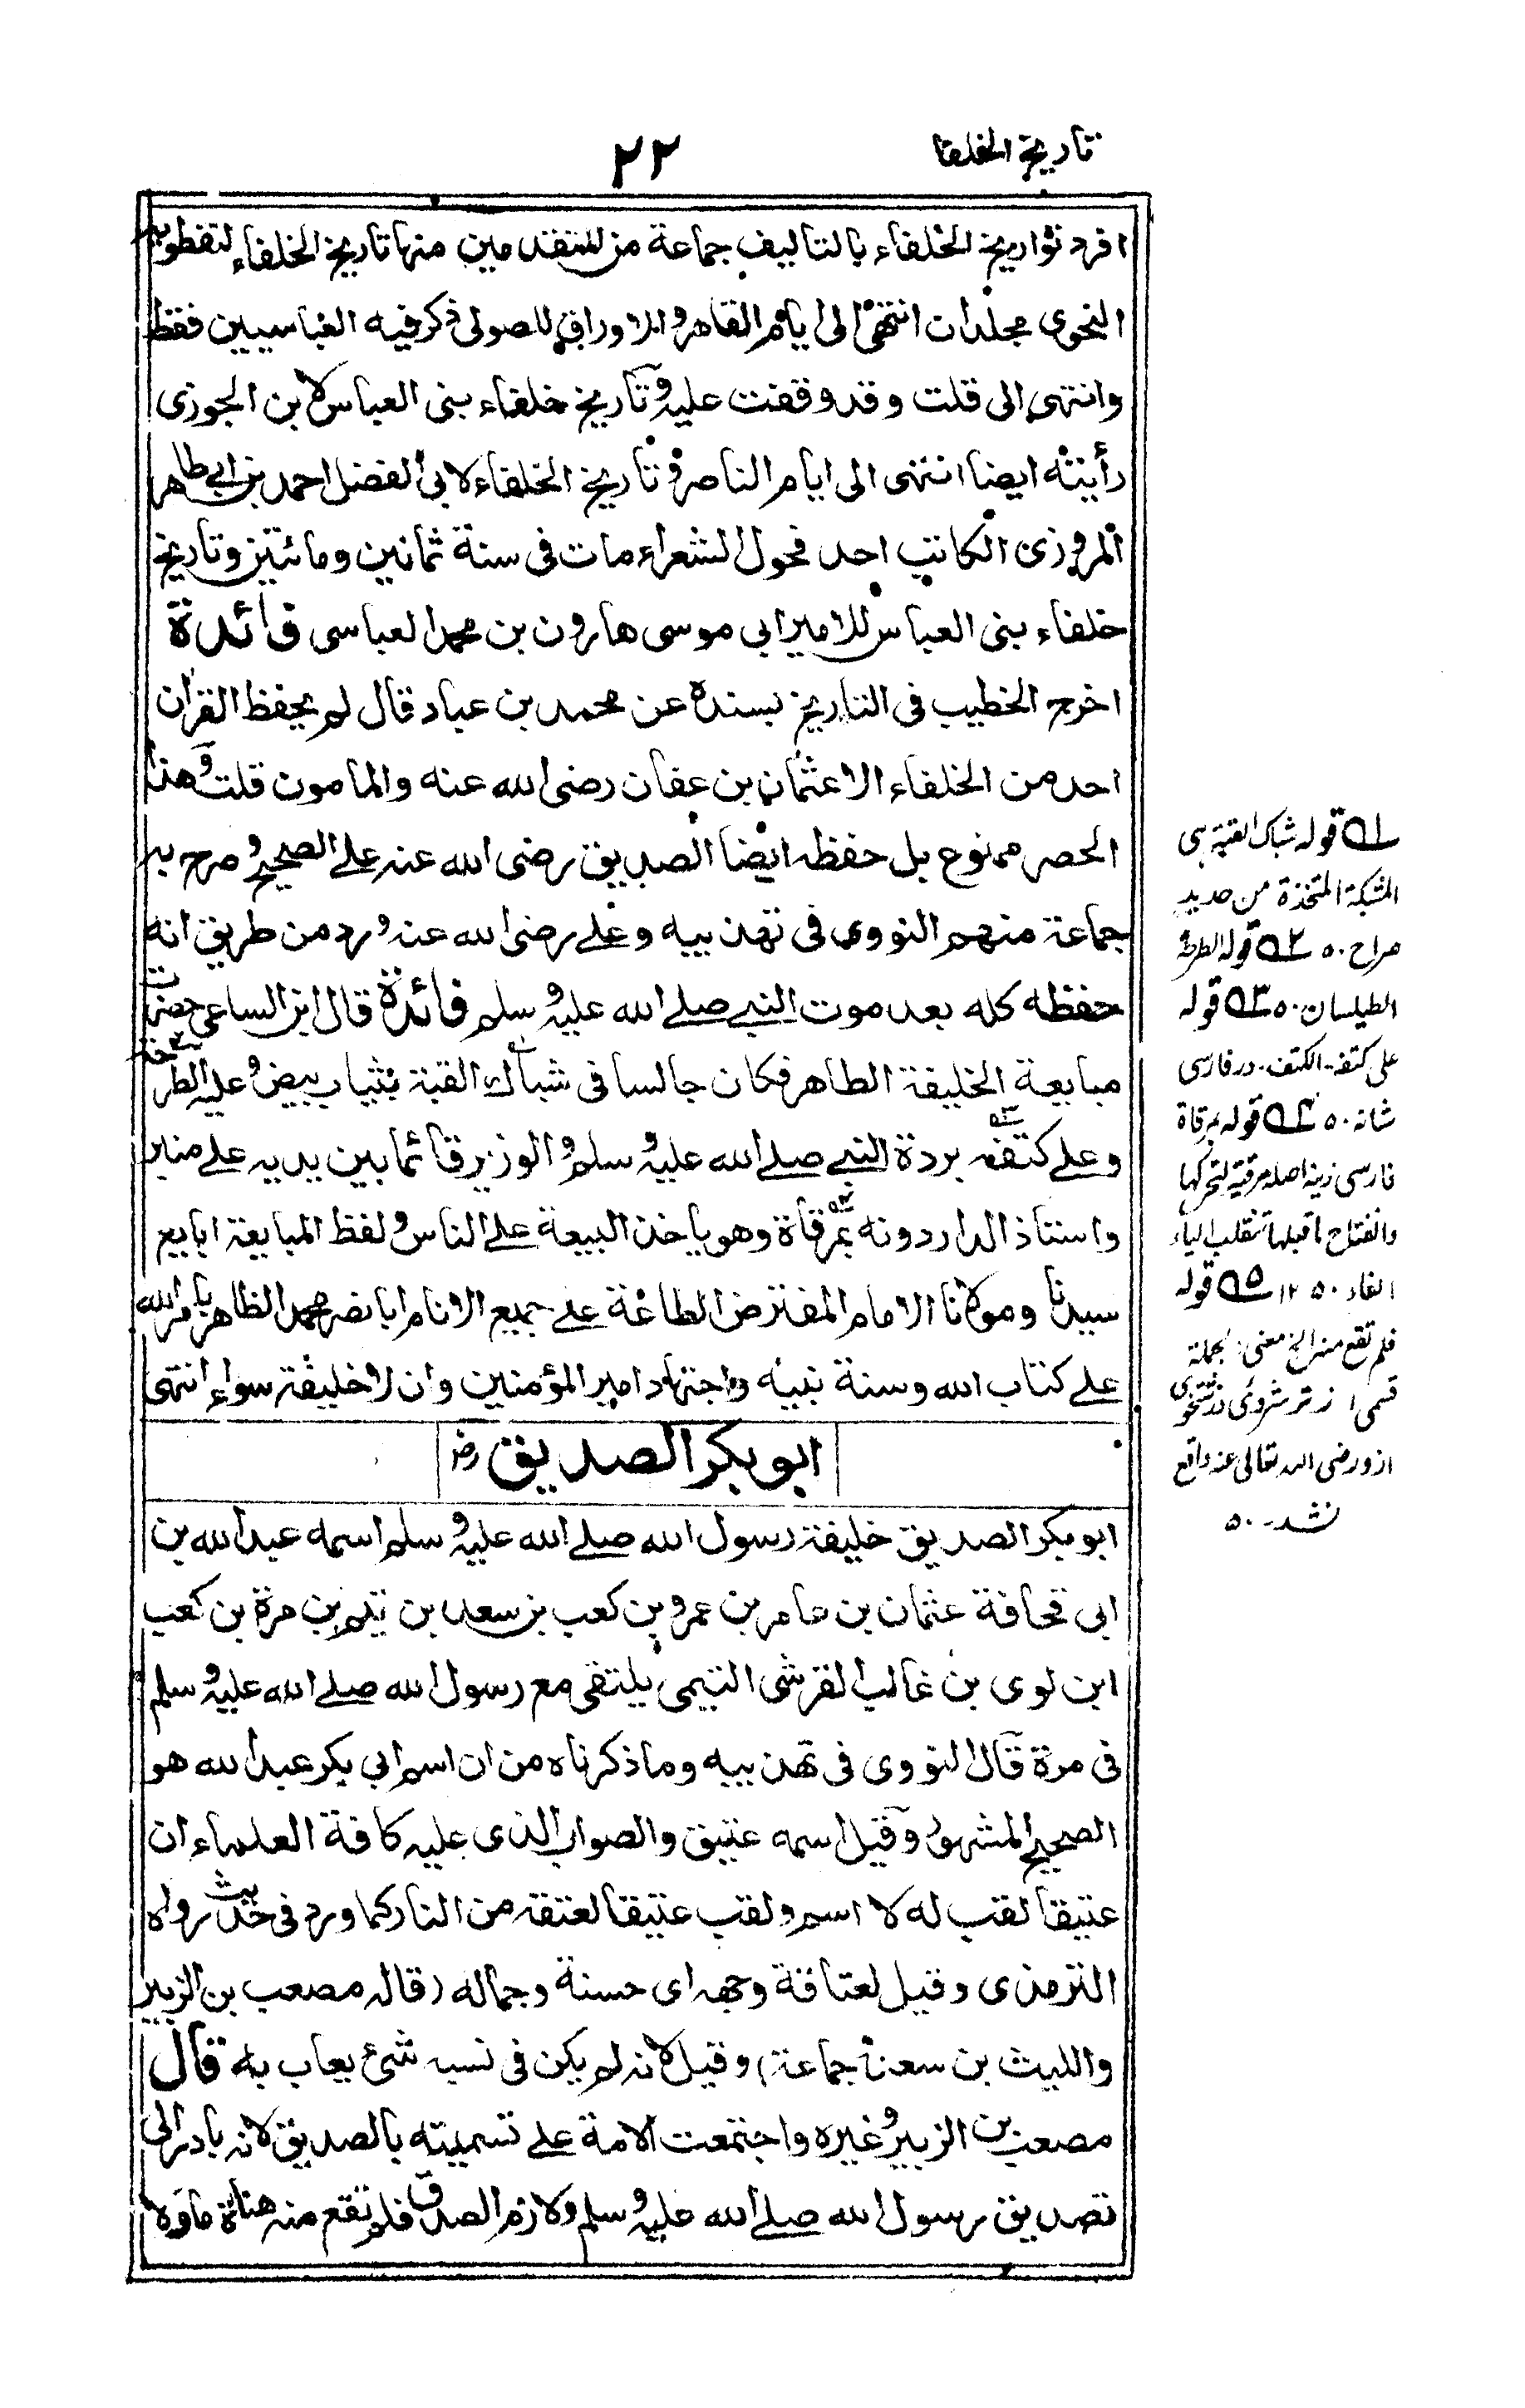 تاريخ الخلفا
٢٢
افرد تواريخ الخلفاء بالتاليف جماعة من المتقدمين منها تاريخ الخلفاء لنفطويه
النحوى مجلدان انتهى الى ايام القاهر والاوراق للصولى ذكر فيه العباسيين فقط
وانتهى الى قلت وقد وقفت عليه وتاريخ خلفاء بنى العباس لابن الجوزى
رأيته ايضا انتهى الى ايام الناصر وتاريخ الخلفاء لابى الفضل احمد بن ابى طاهر
المروزى الكاتب احد فحول الشعراء مات فى سنة ثمانين ومائتين وتاريخ
خلفاء بنى العباس للامير ابى موسى هارون بن محمد العباسى فائدة
اخرج الخطيب فى التاريخ بسنده عن محمد بن عباد قال لم يحفظ القرأن
احد من الخلفاء الا عثمان بن عفان رضى الله عنه والمامون قلت وهذا
الحصر ممنوع بل حفظه ايضا الصديق رضى الله عنه على الصحيح وصرح به
جماعة منهم النووى فى تهذيبه وعلى رضى الله عنه ورد من طريق انه
حفظه كله بعد موت النبى صلى الله عليه وسلم فائدة قال ابن الساعى حضرت
مبايعة الخليفة الظاهر فكان جالسا فى شباك القبة بثياب بيض وعليه الطرحة
وعلى كتفه بردة النبى صلى الله عليه وسلم والوزير قائما بين يديه على منبر
واستاذ الدار دونه بمرقاة وهو ياخذ البيعة على الناس ولفظ المبايعة ابايع
سيدنا ومولانا الامام المفترض الطاعة على جميع الانام ابا نصر محمد الظاهر بامر الله
على كتاب الله وسنة نبيه واجتهاد امير المؤمنين وان لا خليفة سواه انتهى
ابو بكر الصديق رض
ابو بكر الصديق خليفة رسول الله صلى الله عليه وسلم اسمه عبد الله بن
ابى قحافة عثمان بن عامر بن عمرو بن كعب بن سعد بن تيم بن مرة بن كعب
ابن لوى بن غالب القرشى التيمى يلتقى مع رسول الله صلى الله عليه وسلم
فى مرة قال النووى فى تهذيبه وما ذكرناه من ان اسم ابى بكر عبد الله هو
الصحيح المشهور وقيل اسمه عتيق والصواب الذى عليه كافة العلماء ان
عتيقا لقب له لا اسم ولقب عتيقا لعتقه من النار كما ورد فى حديث رواه
الترمذى وقيل لعتاقة وجهه اى حسنة وجماله (قاله مصعب بن الزبير
والليث بن سعد وجماعة) وقيل لانه لم يكن فى نسبه شئ يعاب به قال
مصعب بن الزبير وغيره واجتمعت الامة على تسميته بالصديق لانه بادر الى
تصديق رسول الله صلى الله عليه وسلم ولازم الصدق فلم تقع منه هناة ما ولا
١ قوله شباك القبة هى
المشبكة المتخذة من حديد
صراح ٥٠ ٢ قوله الطرحة
الطيلسان ٥٠ ٣ قوله
على كتفه - الكتف - در فارسى
شانه ٥٠ ٤ قوله بمرقاة
فارسى زينه اصله مرقية لتحركها
وانفتاح ما قبلها تنقلب الياء
الفاء ٥٠ ١٢ ٥ قوله
فلم تقع منه الخ معنى بجملة
قسمى از ترشروئى
از و رضى الله تعالى عنه واقع
نشد - ٥٠